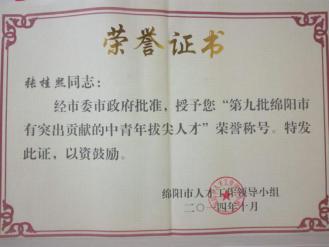 荣誉证书
张桂熙同志：
经市委市政府批准，授予您“第九批绵阳市
有突出贡献的中青年拔尖人才”荣誉称号。特发
此证，以资鼓励。
绵阳市人才工作领导小组
二〇一四年十月